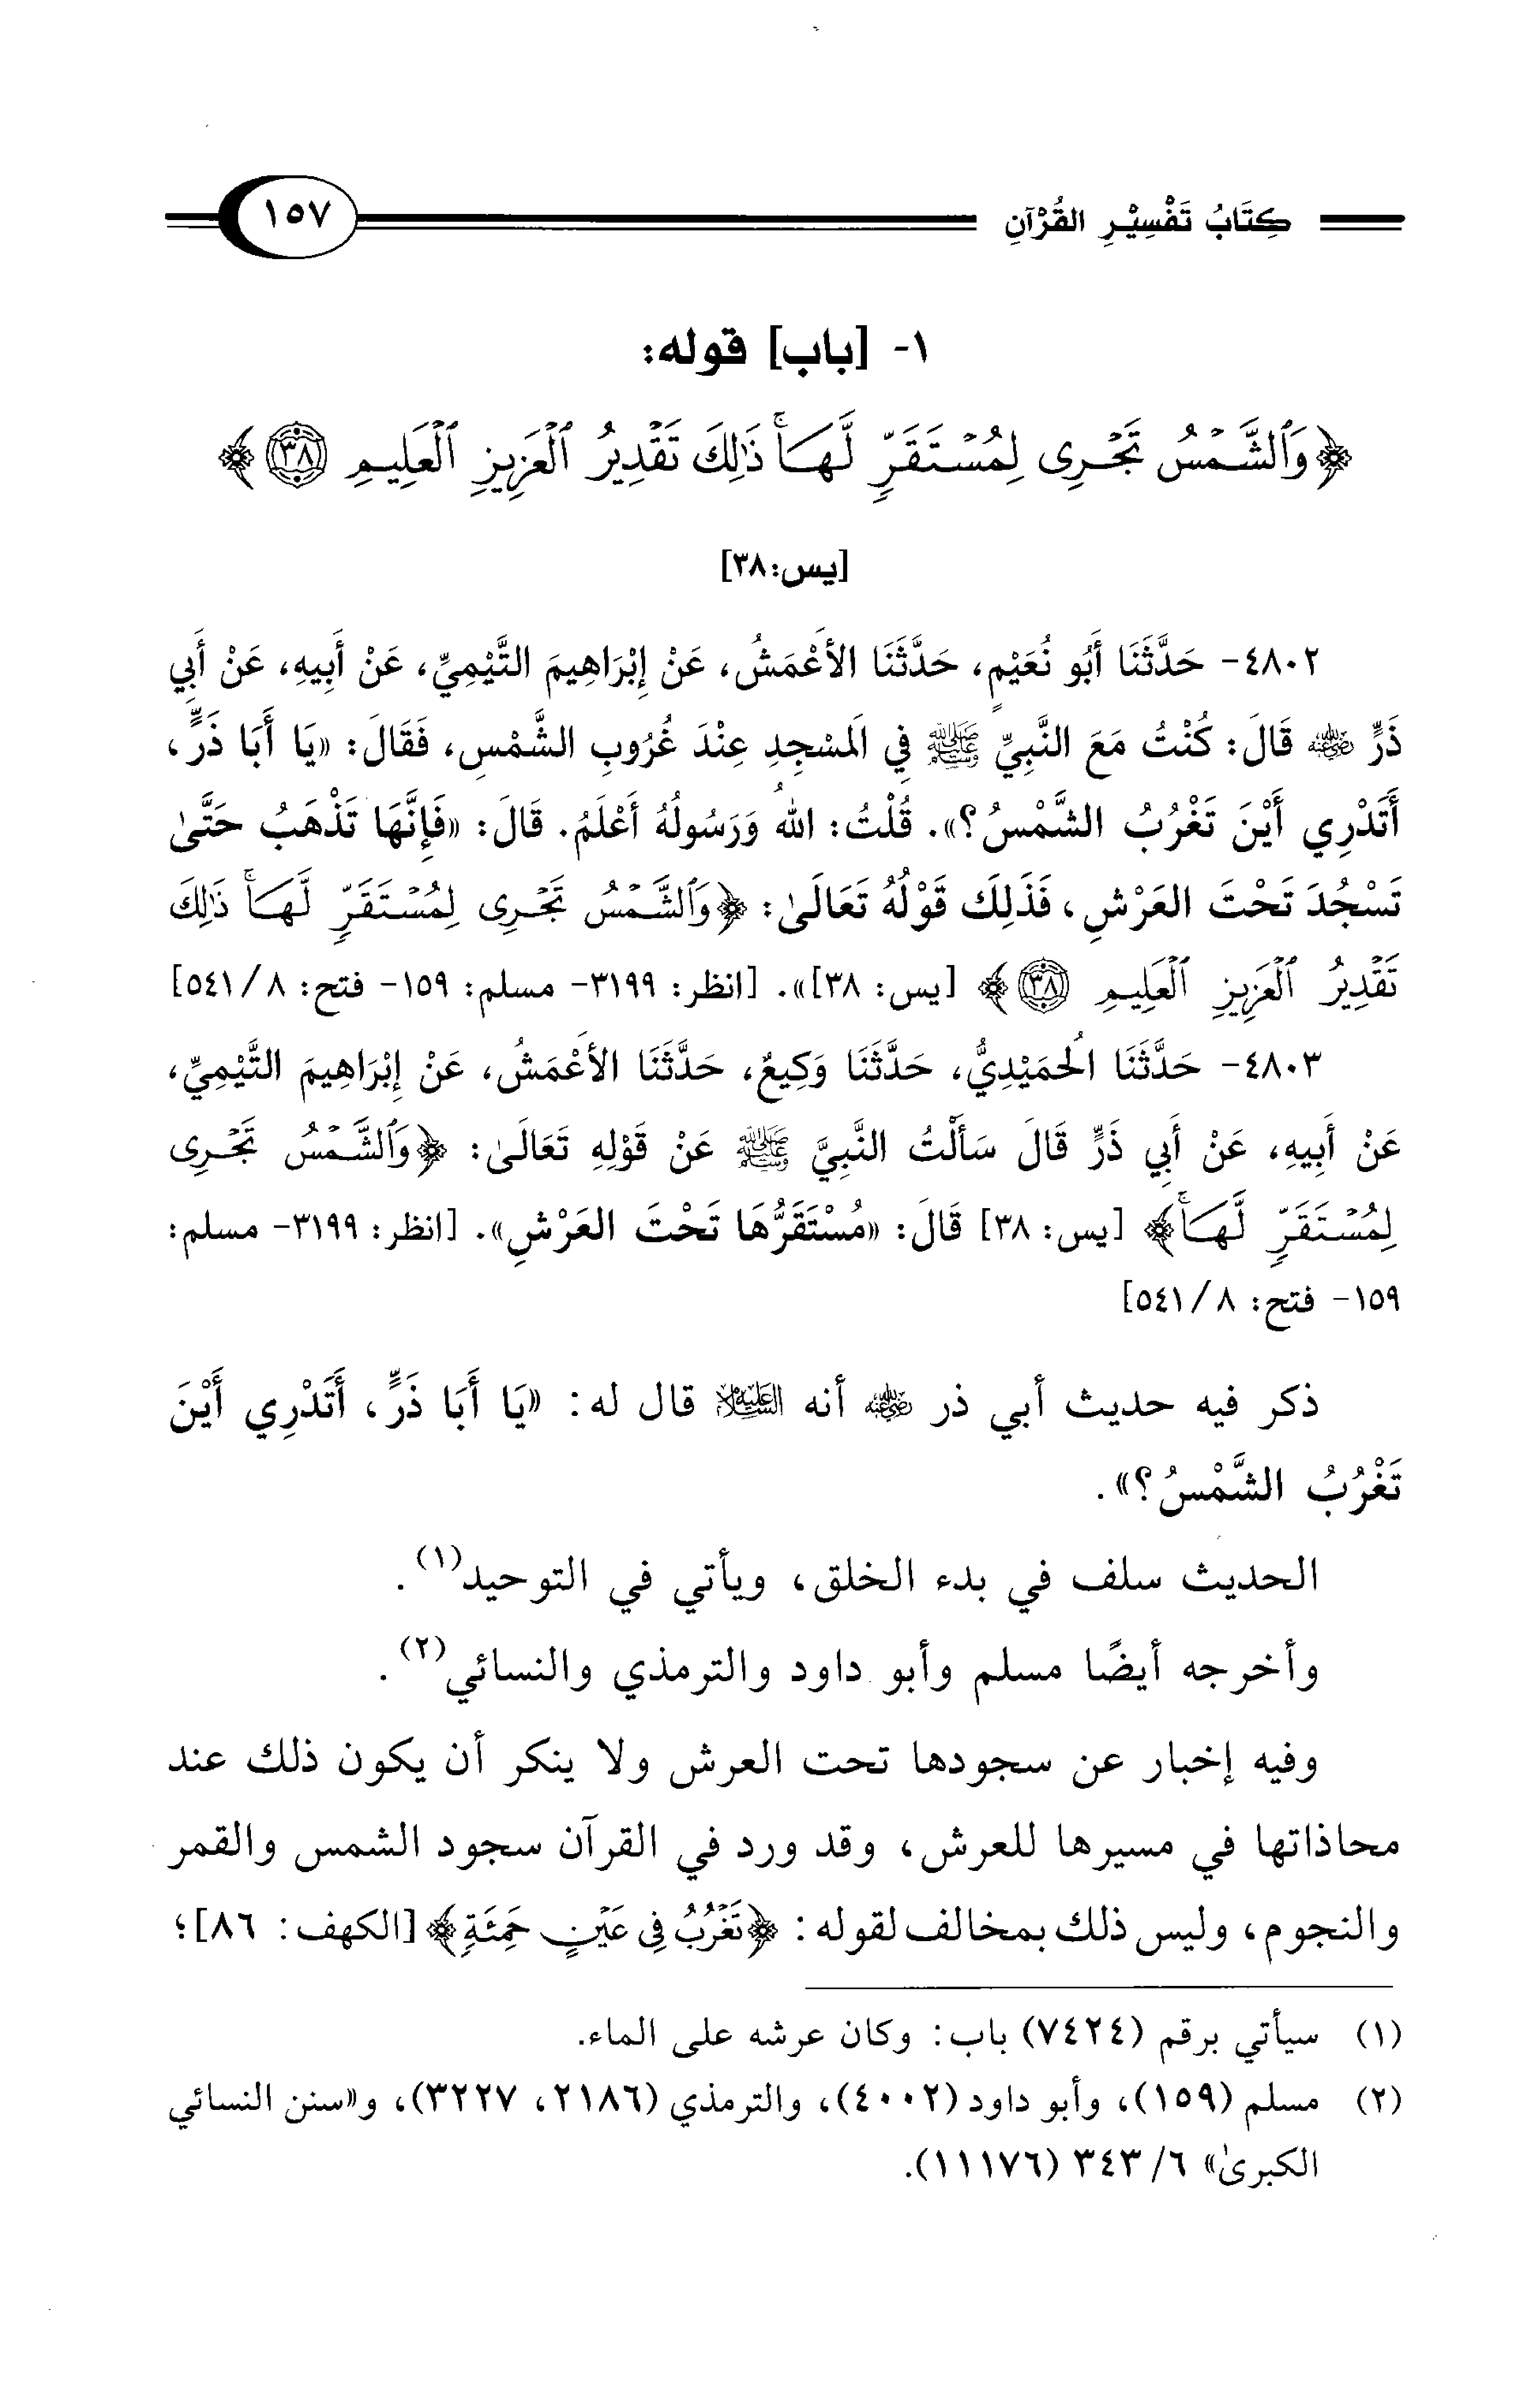 كِتَابُ تَفْسِيْرِ القُرْآنِ ١٥٧
١- [باب] قوله:
﴿وَٱلشَّمْسُ تَجْرِى لِمُسْتَقَرٍّ لَّهَاۚ ذَٰلِكَ تَقْدِيرُ ٱلْعَزِيزِ ٱلْعَلِيمِ ٣٨﴾
[يس:٣٨]
٤٨٠٢- حَدَّثَنَا أَبُو نُعَيْمٍ، حَدَّثَنَا الأَعْمَشُ، عَنْ إِبْرَاهِيمَ التَّيْمِيِّ، عَنْ أَبِيهِ، عَنْ أَبِي
ذَرٍّ رضي الله عنه قَالَ: كُنْتُ مَعَ النَّبِيِّ ﷺ فِي اَلمَسْجِدِ عِنْدَ غُرُوبِ الشَّمْسِ، فَقَالَ: «يَا أَبَا ذَرٍّ،
أَتَدْرِي أَيْنَ تَغْرُبُ الشَّمْسُ؟». قُلْتُ: اللهُ وَرَسُولُهُ أَعْلَمُ. قَالَ: «فَإِنَّهَا تَذْهَبُ حَتَّىٰ
تَسْجُدَ تَحْتَ العَرْشِ، فَذَلِكَ قَوْلُهُ تَعَالَىٰ: ﴿وَٱلشَّمْسُ تَجْرِى لِمُسْتَقَرٍّ لَّهَاۚ ذَٰلِكَ
تَقْدِيرُ ٱلْعَزِيزِ ٱلْعَلِيمِ ٣٨﴾ [يس: ٣٨]». [انظر: ٣١٩٩- مسلم: ١٥٩- فتح: ٨/ ٥٤١]
٤٨٠٣- حَدَّثَنَا اُلحُمَيْدِيُّ، حَدَّثَنَا وَكِيعٌ، حَدَّثَنَا الأَعْمَشُ، عَنْ إِبْرَاهِيمَ التَّيْمِيِّ،
عَنْ أَبِيهِ، عَنْ أَبِي ذَرٍّ قَالَ سَأَلْتُ النَّبِيَّ ﷺ عَنْ قَوْلِهِ تَعَالَىٰ: ﴿وَٱلشَّمْسُ تَجْرِى
لِمُسْتَقَرٍّ لَّهَاۚ﴾ [يس: ٣٨] قَالَ: «مُسْتَقَرُّهَا تَحْتَ العَرْشِ». [انظر: ٣١٩٩- مسلم:
١٥٩- فتح: ٨/ ٥٤١]
ذكر فيه حديث أبي ذر رضي الله عنه أنه عليه السلام قال له: «يَا أَبَا ذَرٍّ، أَتَدْرِي أَيْنَ
تَغْرُبُ الشَّمْسُ؟».
الحديث سلف في بدء الخلق، ويأتي في التوحيد(١).
وأخرجه أيضًا مسلم وأبو داود والترمذي والنسائي(٢).
وفيه إخبار عن سجودها تحت العرش ولا ينكر أن يكون ذلك عند
محاذاتها في مسيرها للعرش، وقد ورد في القرآن سجود الشمس والقمر
والنجوم، وليس ذلك بمخالف لقوله: ﴿تَغْرُبُ فِى عَيْنٍ حَمِئَةٍ﴾ [الكهف: ٨٦]؛
(١) سيأتي برقم (٧٤٢٤) باب: وكان عرشه على الماء.
(٢) مسلم (١٥٩)، وأبو داود (٤٠٠٢)، والترمذي (٢١٨٦، ٣٢٢٧)، و«سنن النسائي
الكبرىٰ» ٦/ ٣٤٣ (١١١٧٦).